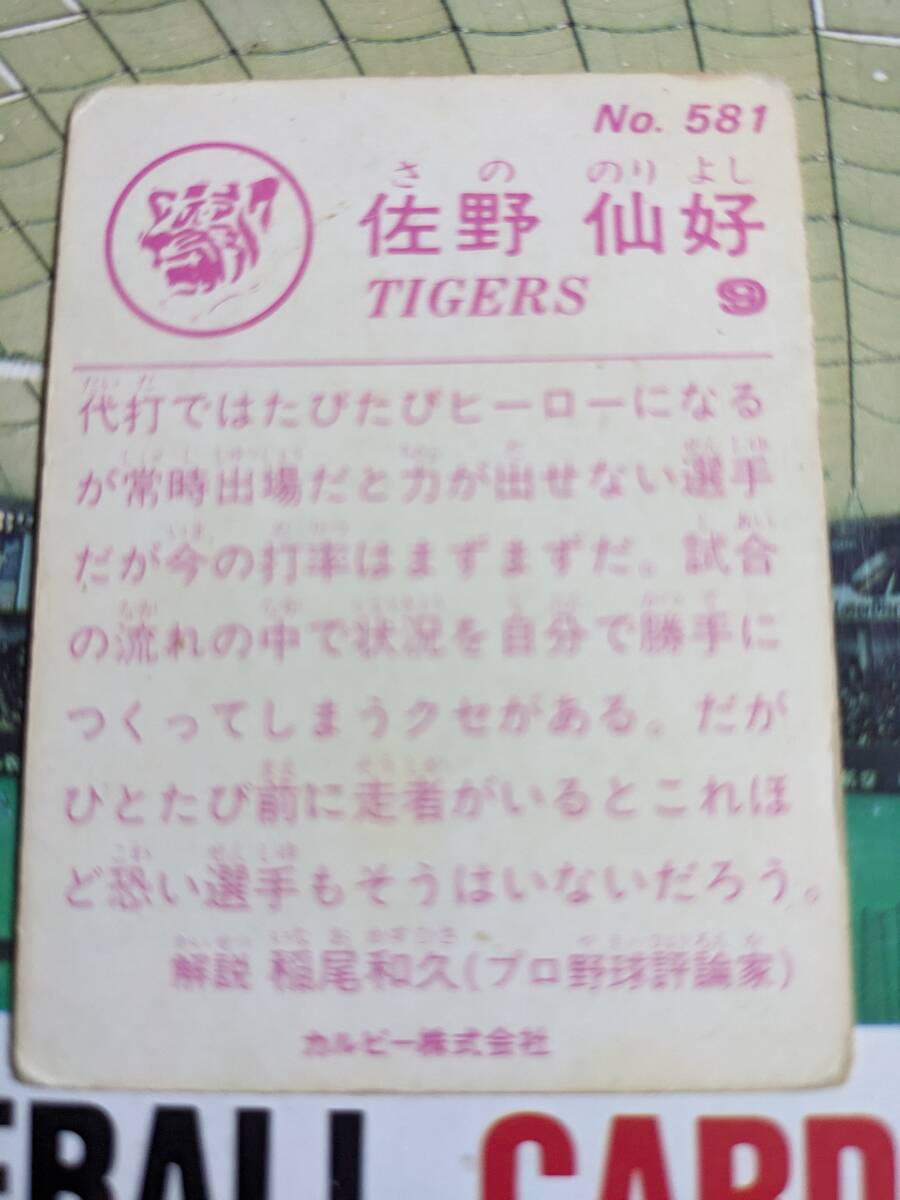 No. 581
さの のりよし
佐野 仙好
TIGERS 9
代打ではたびたびヒーローになる
が常時出場だと力が出せない選手
だが今の打率はまずまずだ。試合
の流れの中で状況を自分で勝手に
つくってしまうクセがある。だが
ひとたび前に走者がいるとこれほ
ど恐い選手もそうはいないだろう。
解説 稲尾和久(プロ野球評論家)
カルビー株式会社
BASEBALL CARD